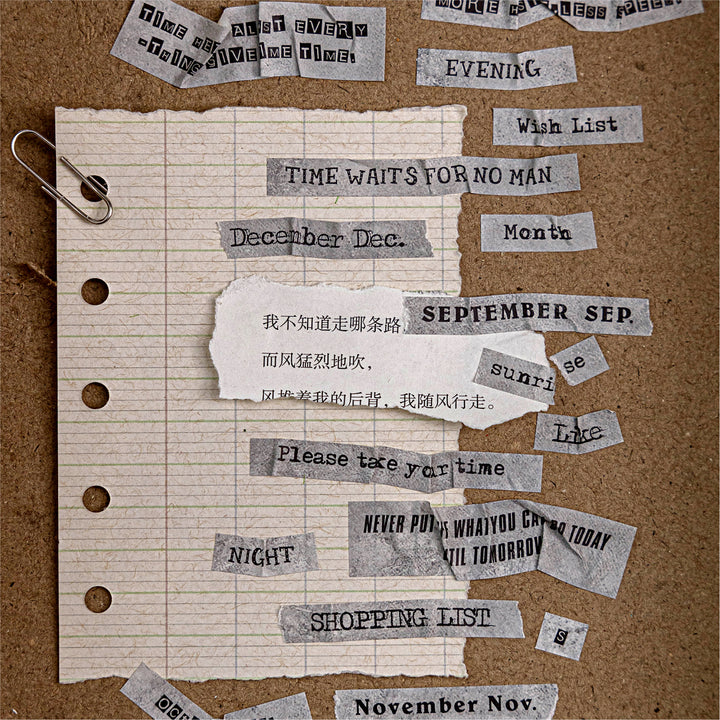 TIME HEALS ALMOST EVERY
-THING GIVE ME TIME.
MORE HASTE LESS SPEED
EVENING
Wish List
TIME WAITS FOR NO MAN
December Dec.
Month
我不知道走哪条路
SEPTEMBER SEP.
而风猛烈地吹，
sunri
se
风推着我的后背，我随风行走。
Like
Please take your time
NEVER PUT WHAT YOU CAN DO TODAY
UNTIL TOMORROW
NIGHT
SHOPPING LIST
s
November Nov.